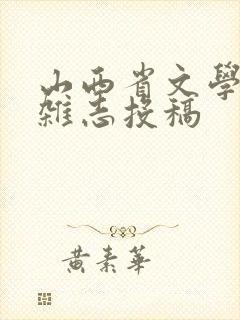 山西省文學
雜志投稿
黄素華